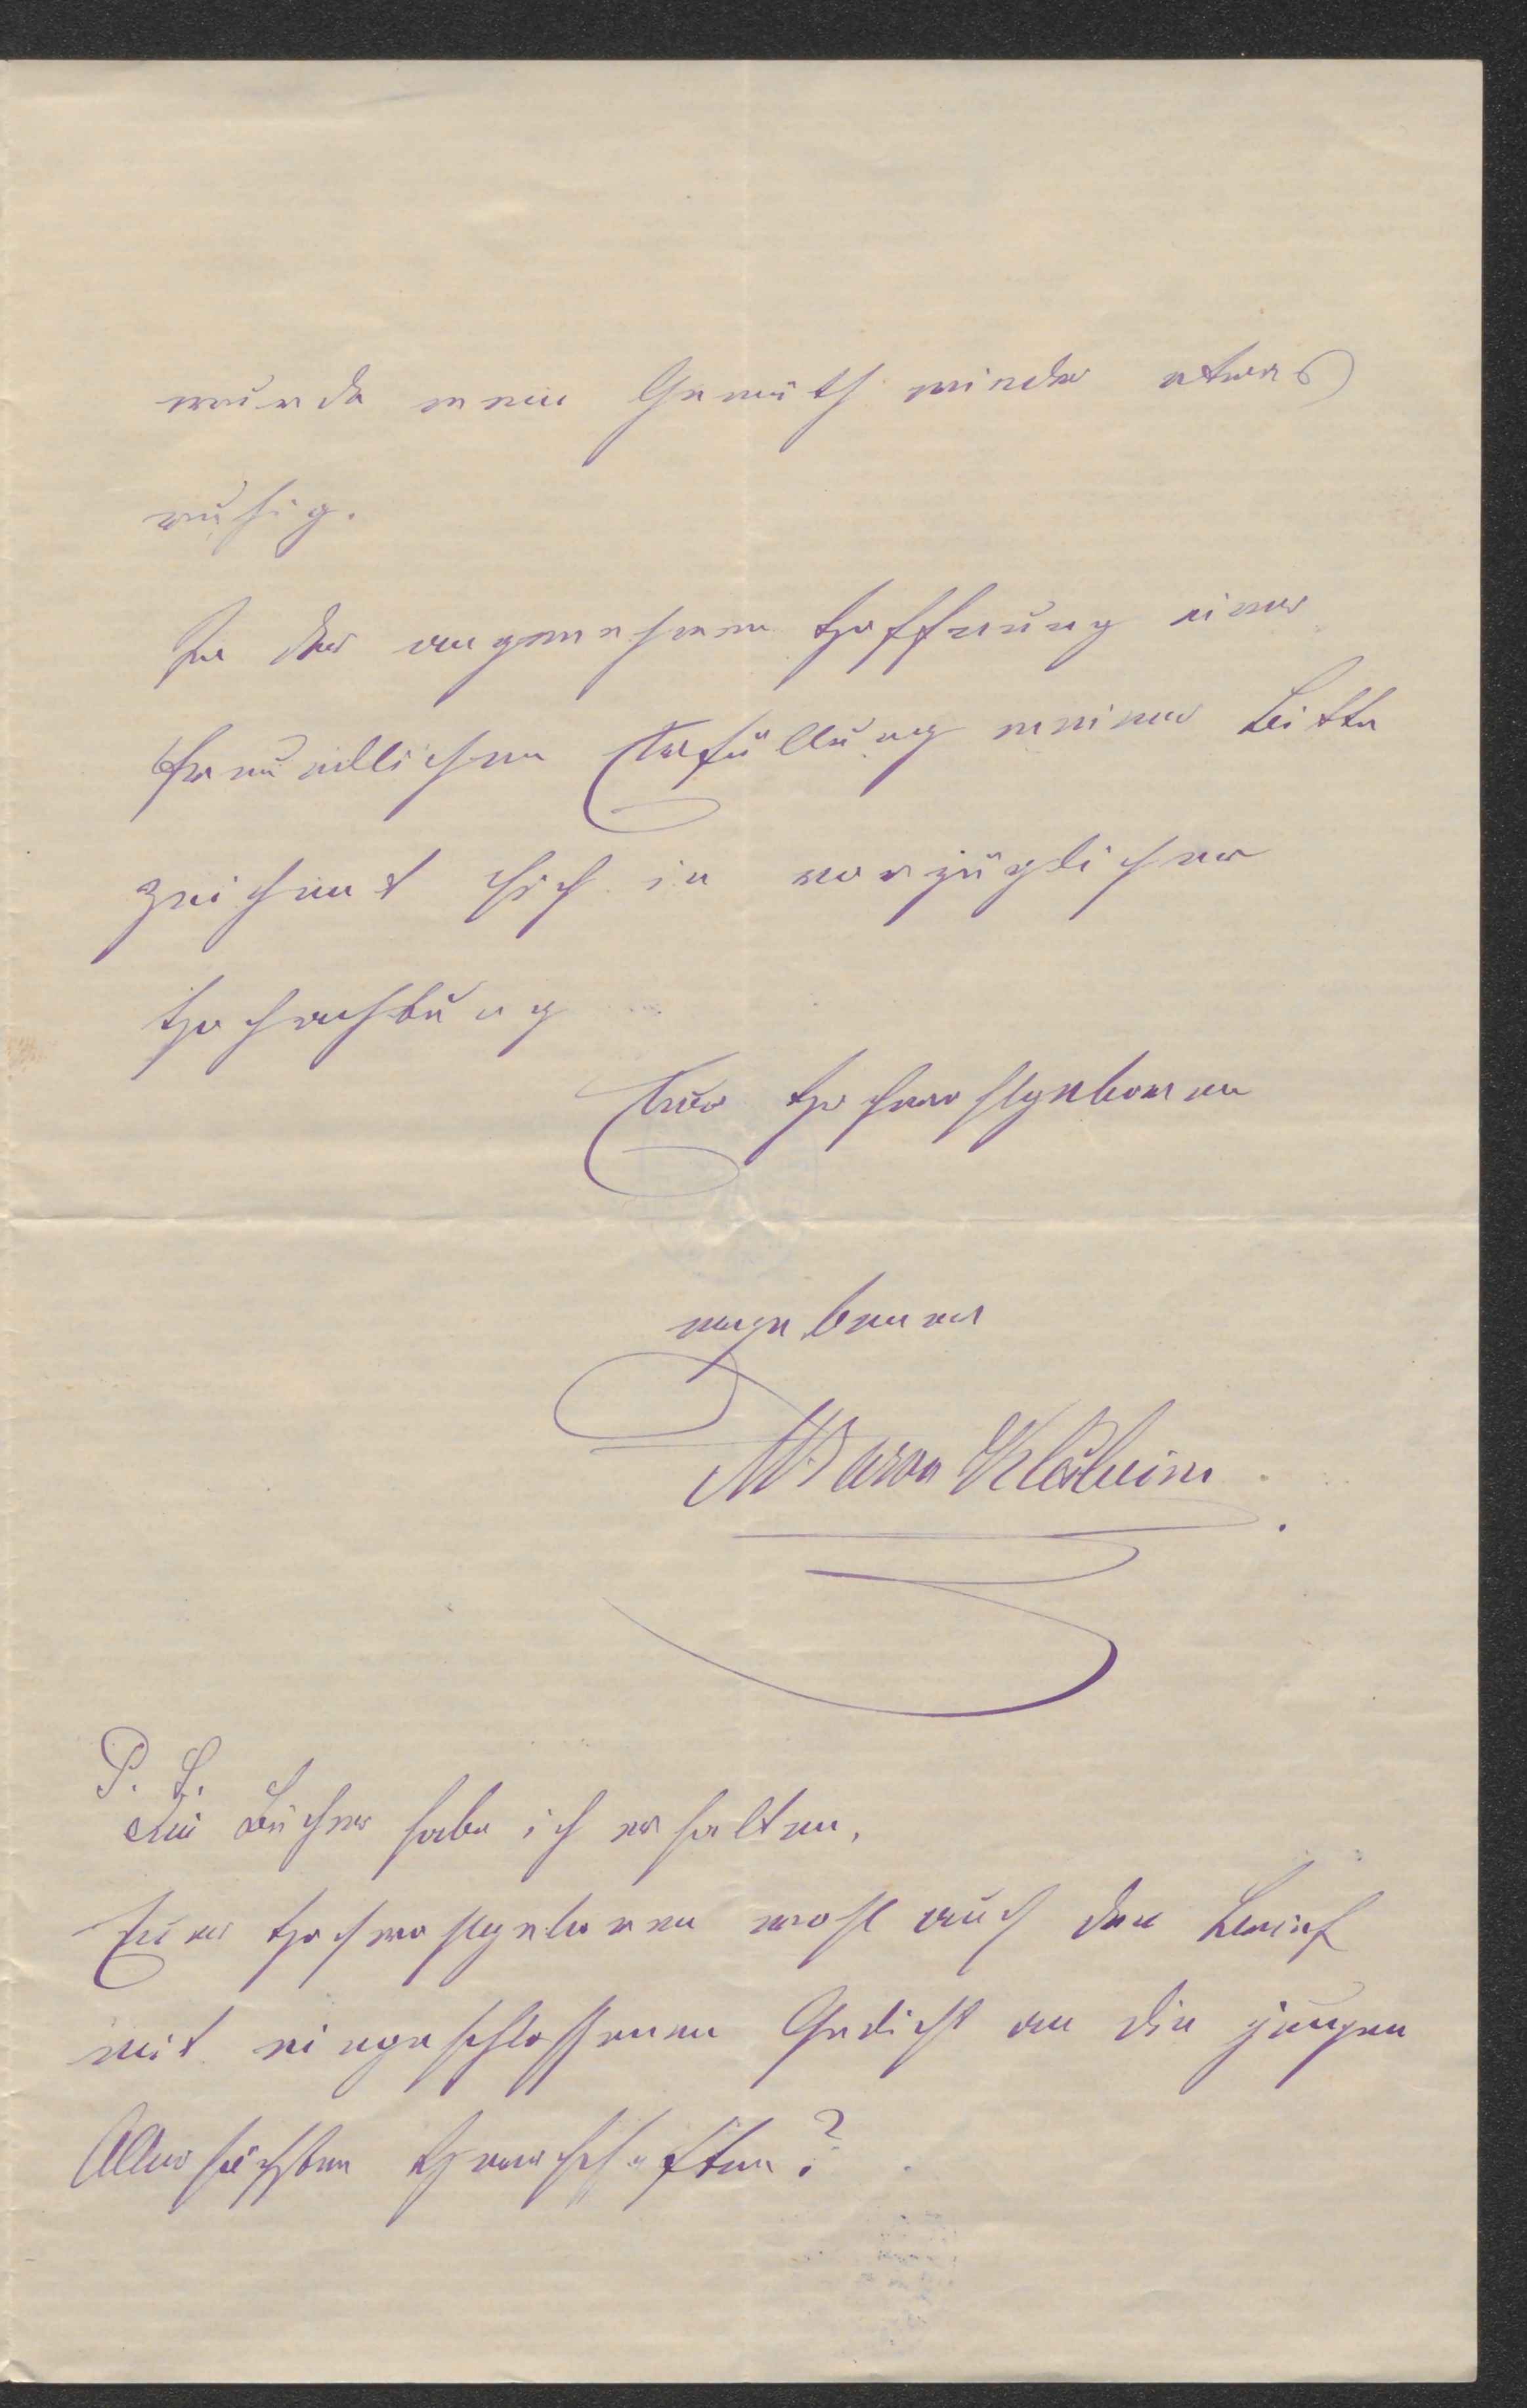 wurde mein Gemüth wieder etwas
ruhig.
In der angenehmen Hoffnung einer
freundlichen Erfüllung meiner Bitte
zeichnet sich in vorzüglicher
Hochachtung
Euer Hochwohlgeboren
ergebener
M Baron Klesheim
P. S.
Die Bücher habe ich erhalten,
Euer Hochwohlgeboren wohl auch den Brief
mit eingeschlossenen Gedicht an die jungen
Allerhöchsten Herrschaften?